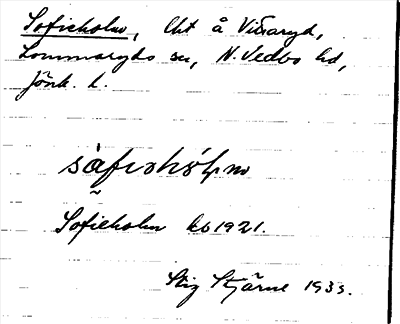 Sofieholm, lht å Vibaryd,
Lommaryds sn, N. Vedbo hd,
Jönk. l.
såfiəhòl̥m
Sofieholm kb 1921.
Stig Stjärne 1933.